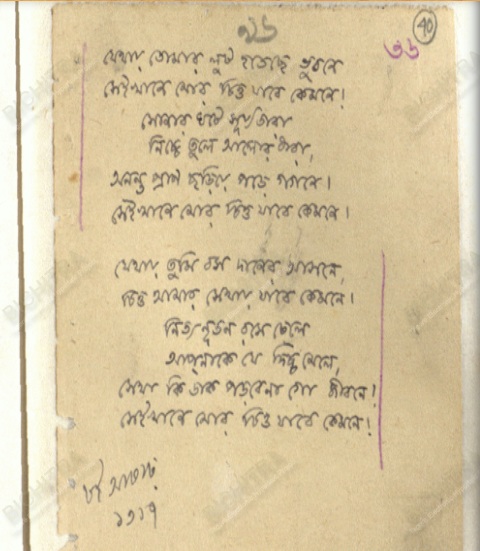 ৯৬
40
৩৬
যেথায় তোমার লুট হতেছে ভুবনে
সেইখানে মোর চিত্ত যাবে কেমনে!
সোনার ঘটে সূর্য্য তারা
নিচ্চে তুলে আলোর ধারা,
অনন্ত প্রাণ ছড়িয়ে পড়ে গগনে।
সেইখানে মোর চিত্ত যাবে কেমনে।
যেথায় তুমি বস দানের আসনে,
চিত্ত আমার সেথায় যাবে কেমনে।
নিত্য নূতন রসে ঢেলে
আপনাকে যে দিচ্চ মেলে,
সেথা কি ডাক পড়বেনা গো জীবনে!
সেইখানে মোর চিত্ত যাবে কেমনে!
আষাঢ়
১৩১৭